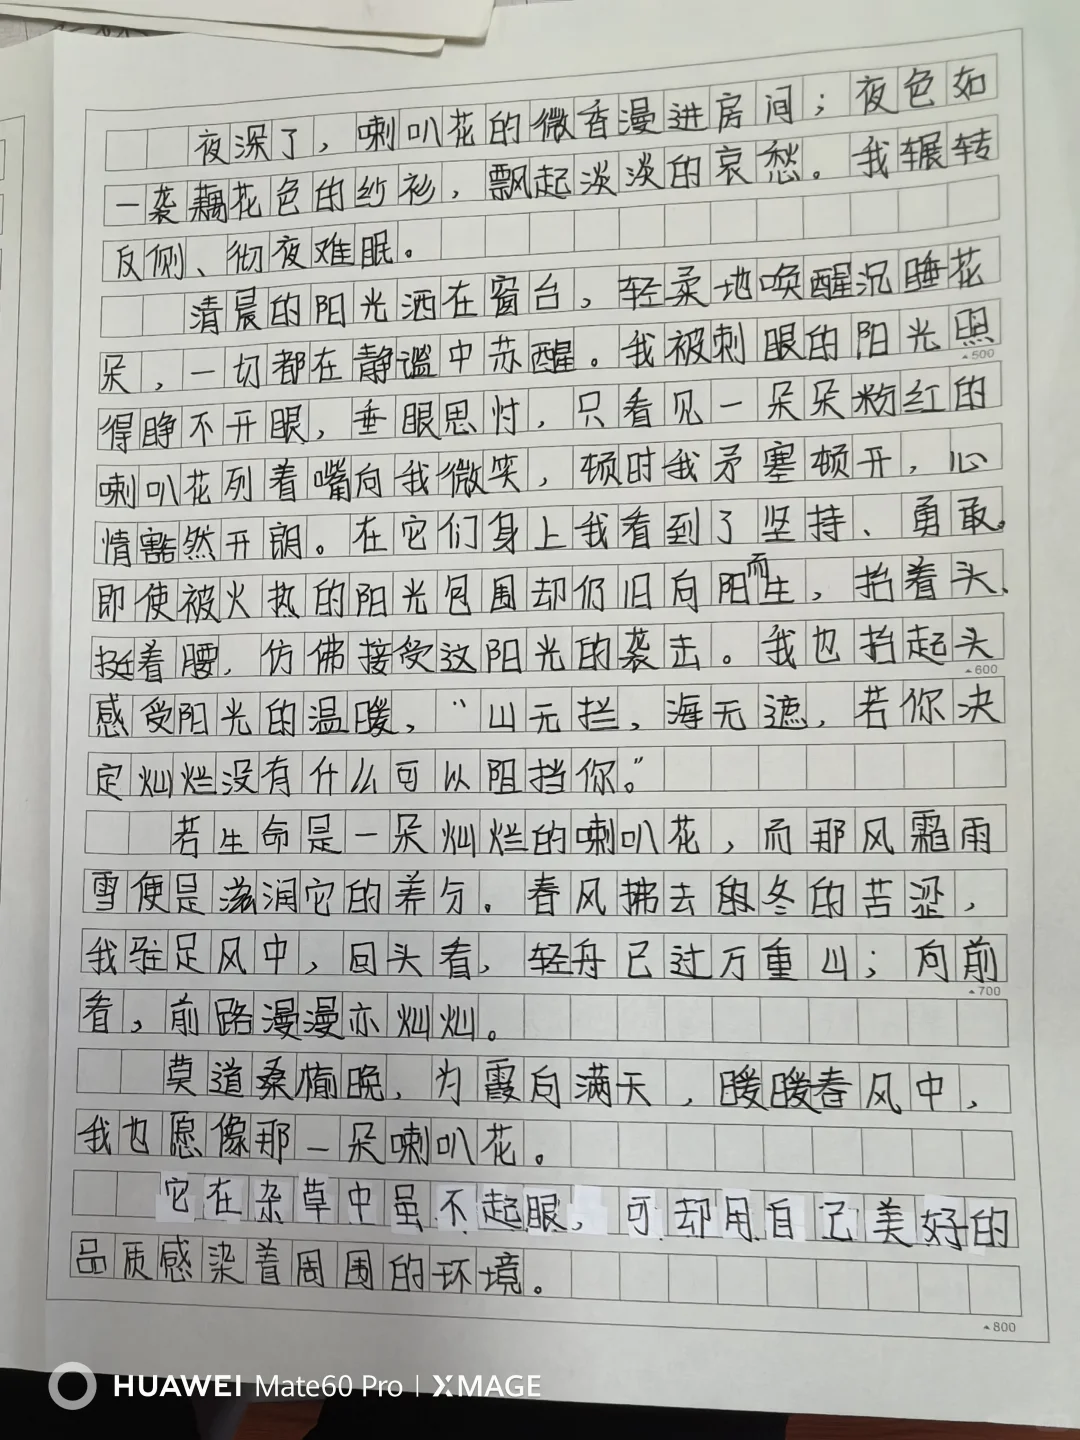 夜深了，喇叭花的微香漫进房间；夜色如
一袭藕花色的纱衫，飘起淡淡的哀愁。我辗转
反侧、彻夜难眠。
清晨的阳光洒在窗台，轻柔地唤醒沉睡花
朵，一切都在静谧中苏醒。我被刺眼的阳光照
▲500
得睁不开眼，垂眼思忖，只看见一朵朵粉红的
喇叭花列着嘴向我微笑，顿时我矛塞顿开，心
情豁然开朗。在它们身上我看到了坚持、勇敢。
即使被火热的阳光包围却仍旧向阳而生，抬着头、
挺着腰，仿佛接受这阳光的袭击。我也抬起头
▲600
感受阳光的温暖，“山无拦，海无遮，若你决
定灿烂没有什么可以阻挡你。”
若生命是一朵灿烂的喇叭花，而那风霜雨
雪便是滋润它的养分。春风拂去的冬的苦涩，
我驻足风中，回头看，轻舟已过万重山；向前
▲700
看，前路漫漫亦灿灿。
莫道桑榆晚，为霞向满天，暖暖春风中，
我也愿像那一朵喇叭花。
它在杂草中虽不起眼，可却用自己美好的
品质感染着周围的环境。
▲800
HUAWEI Mate60 Pro | XMAGE